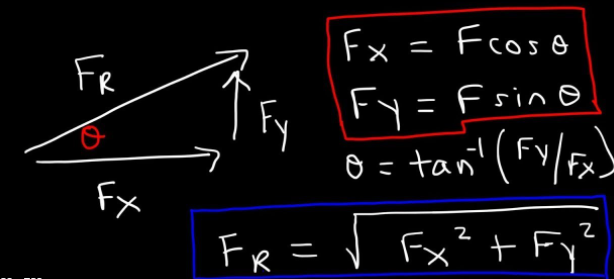 F_R
θ
F_y
F_x
F_x = F cos θ
F_y = F sin θ
θ = tan⁻¹ (F_y/F_x)
F_R = √(F_x² + F_y²)